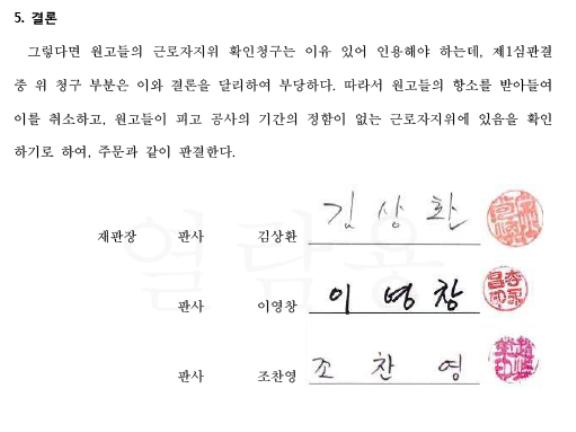 5. 결론
그렇다면 원고들의 근로자지위 확인청구는 이유 있어 인용해야 하는데, 제1심판결
중 위 청구 부분은 이와 결론을 달리하여 부당하다. 따라서 원고들의 항소를 받아들여
이를 취소하고, 원고들이 피고 공사의 기간의 정함이 없는 근로자지위에 있음을 확인
하기로 하여, 주문과 같이 판결한다.
열람용
재판장 판사 김상환 김상환
판사 이영창 이영창
판사 조찬영 조찬영